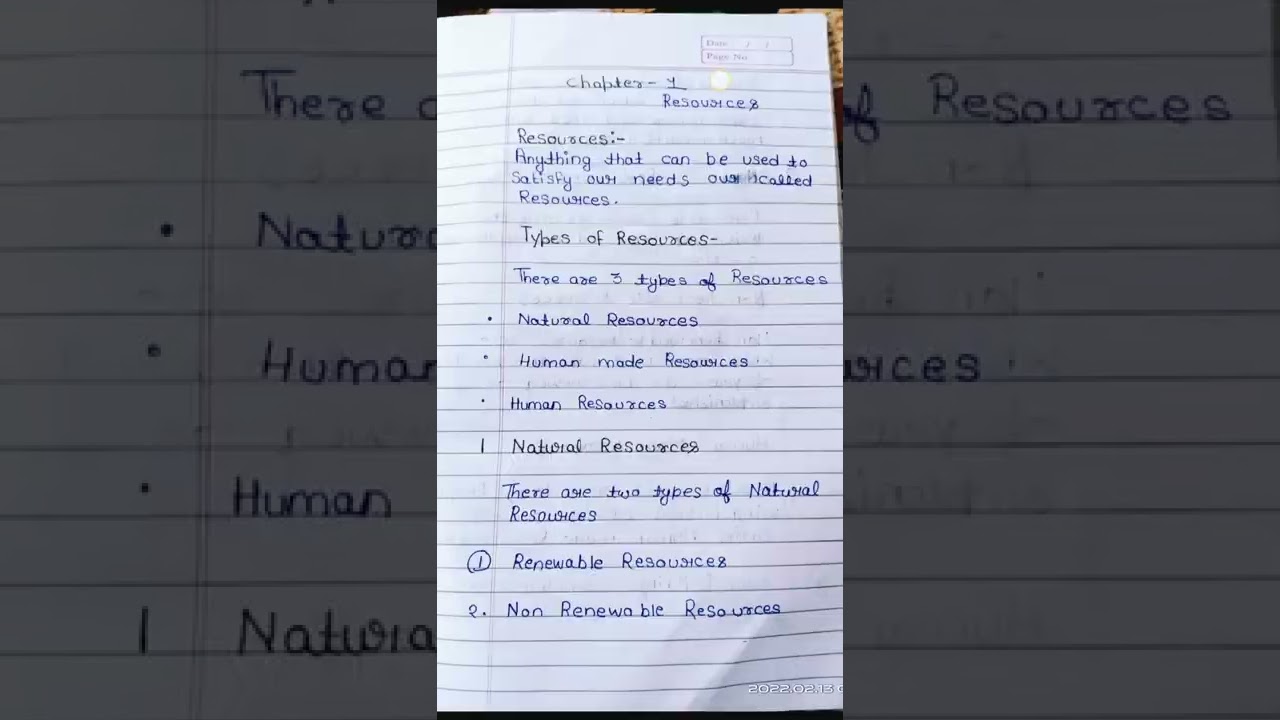 Date / /
Page No
Chapter - 1
Resources
Resources:-
Anything that can be used to
Satisfy our needs our called
Resources.
Types of Resources-
There are 3 types of Resources
• Natural Resources
• Human made Resources
• Human Resources
1 Natural Resources
There are two types of Natural
Resources
① Renewable Resources
2. Non Renewable Resources
2022.02.13